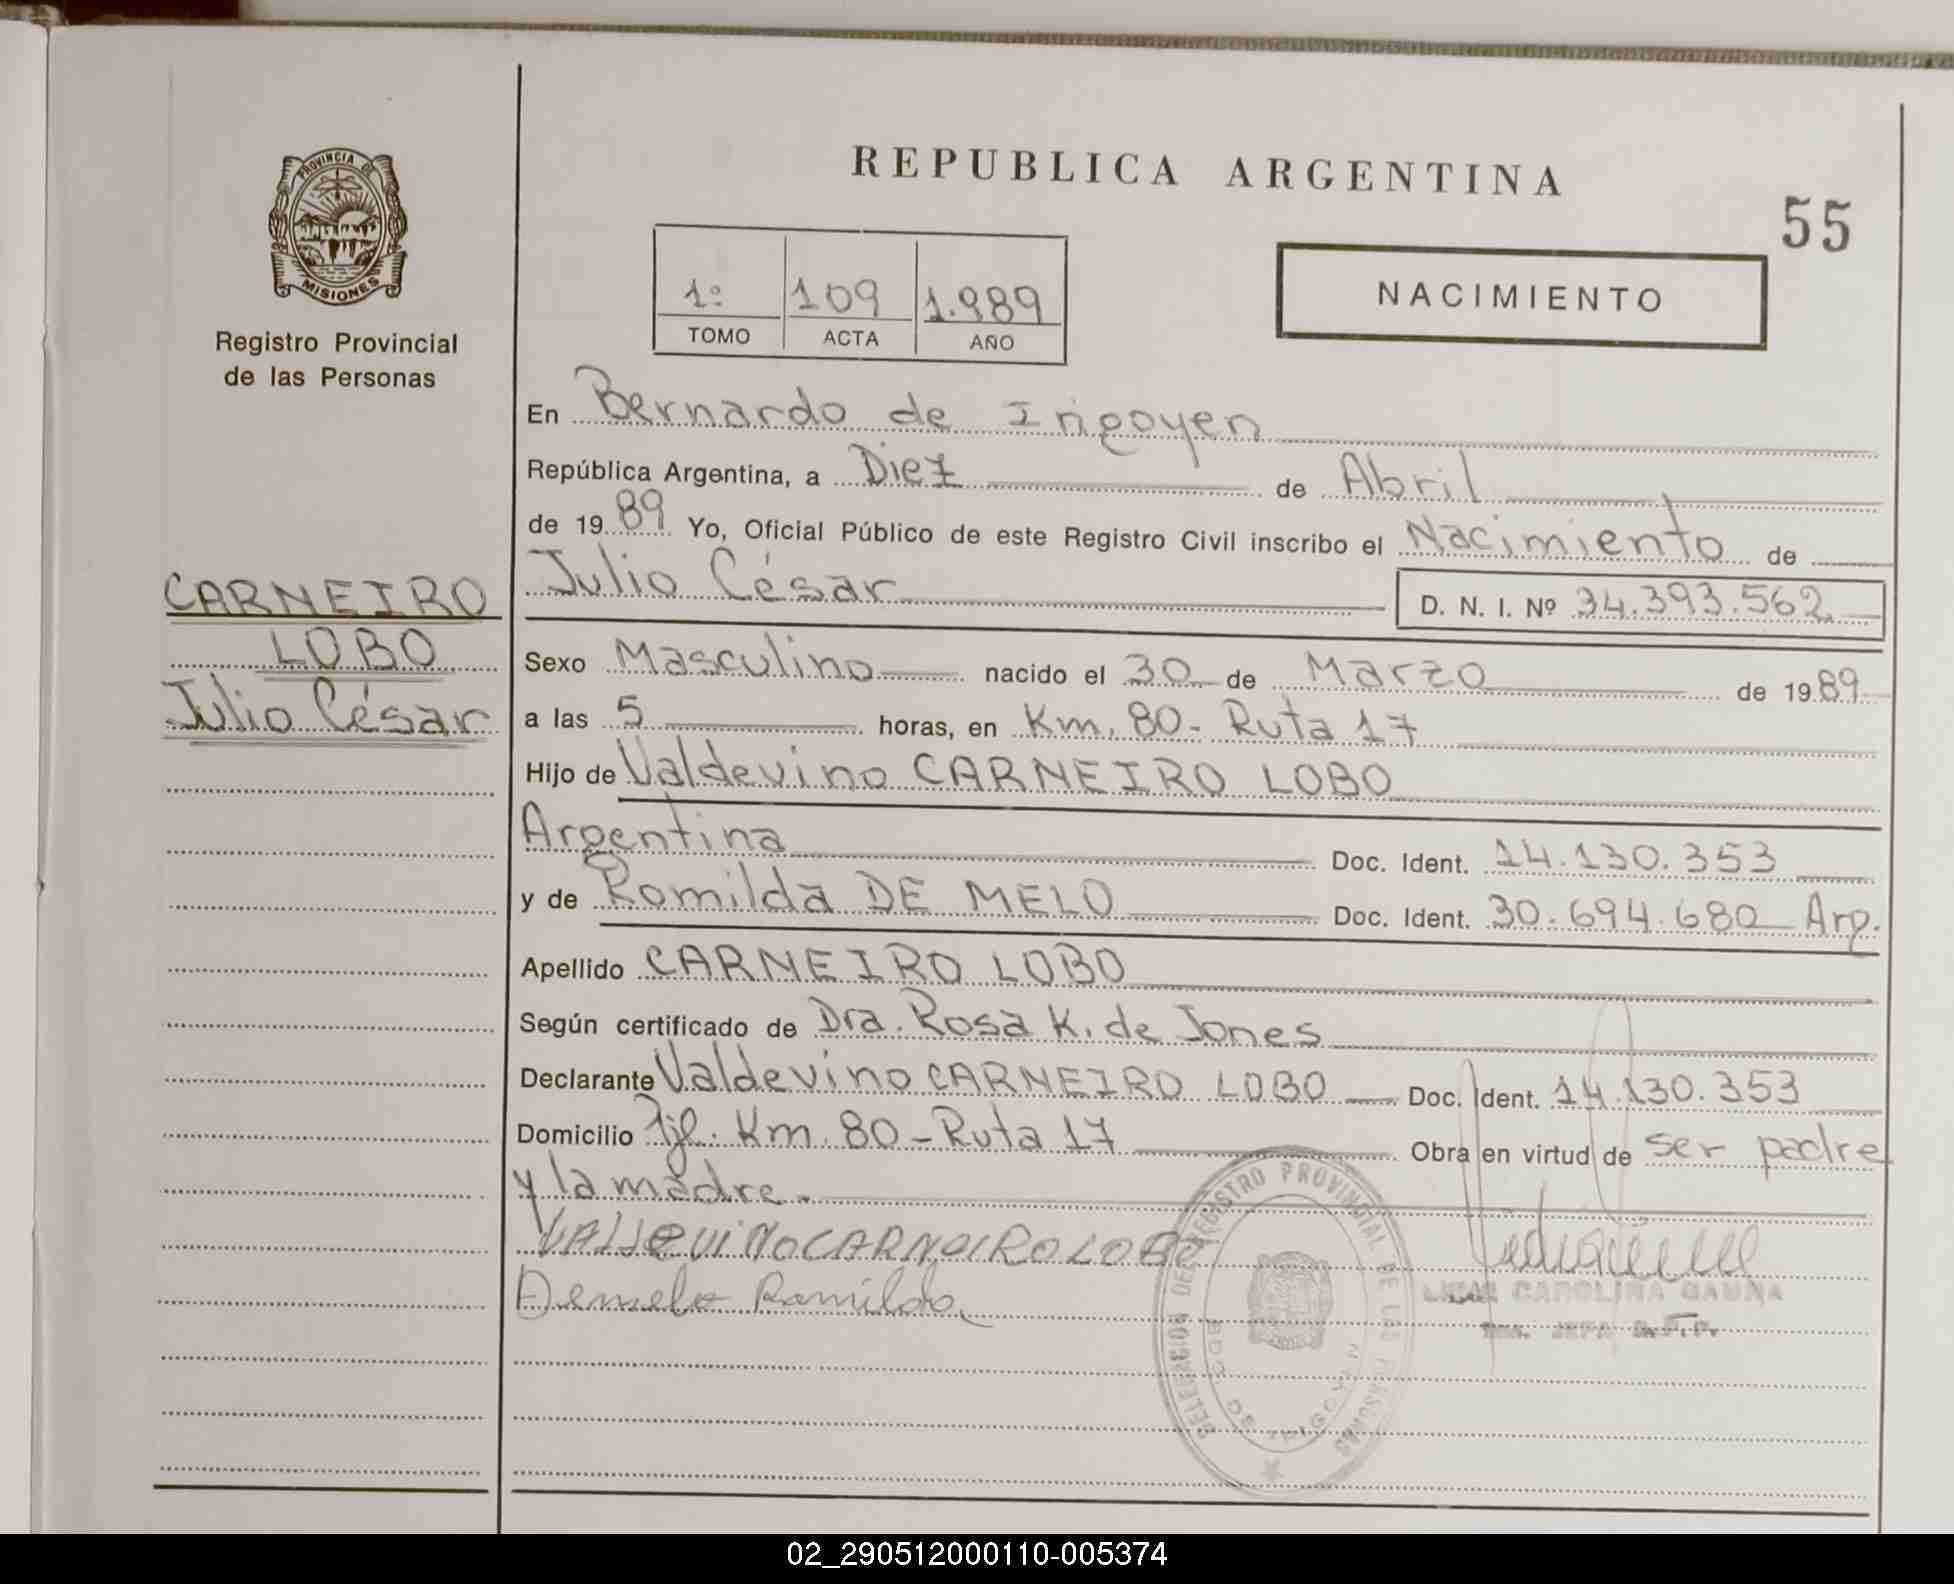 REPUBLICA ARGENTINA
55
PROVINCIA DE
MISIONES
Registro Provincial
de las Personas
1º 109 1.989
TOMO ACTA AÑO
NACIMIENTO
En Bernardo de Irigoyen
República Argentina, a Diez de Abril
de 1989 Yo, Oficial Público de este Registro Civil inscribo el Nacimiento de
Julio César D. N. I. Nº 34.393.562
CARNEIRO
LOBO
Julio César
Sexo Masculino nacido el 30 de Marzo de 1989
a las 5 horas, en Km. 80- Ruta 17
Hijo de Valdevino CARNEIRO LOBO
Argentina Doc. Ident. 14.130.353
y de Romilda DE MELO Doc. Ident. 30.694.680 Arg.
Apellido CARNEIRO LOBO
Según certificado de Dra. Rosa K. de Jones
Declarante Valdevino CARNEIRO LOBO Doc. Ident. 14.130.353
Domicilio Km. 80-Ruta 17 Obra en virtud de ser padre
y la madre.
VALDEVINOCARNEIROLOBO
Demelo Romilda
DELEGACION DEL REGISTRO PROVINCIAL DE LAS PERSONAS
BDO. DE IRIGOYEN
CAROLINA GAUNA
JEFA
02_290512000110-005374